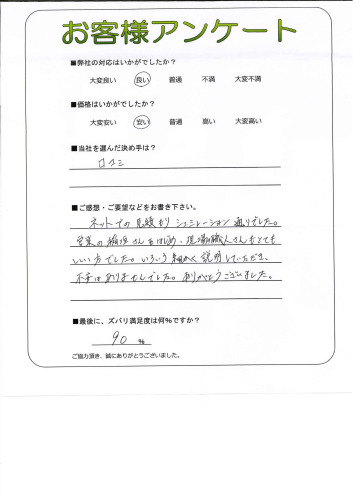 お客様アンケート
■弊社の対応はいかがでしたか？
大変良い 良い 普通 不満 大変不満
■価格はいかがでしたか？
大変安い 安い 普通 高い 大変高い
■当社を選んだ決め手は？
口コミ
■ご感想・ご要望などをお書き下さい。
ネットでの見積もりシュミレーション通りでした。
営業の さんをはじめ、現場職人さんもとても
いい方でした。いろいろ細かく説明していただき、
不安はありませんでした。ありがとうございました。
■最後に、ズバリ満足度は何%ですか？
90 %
ご協力頂き、誠にありがとうございました。